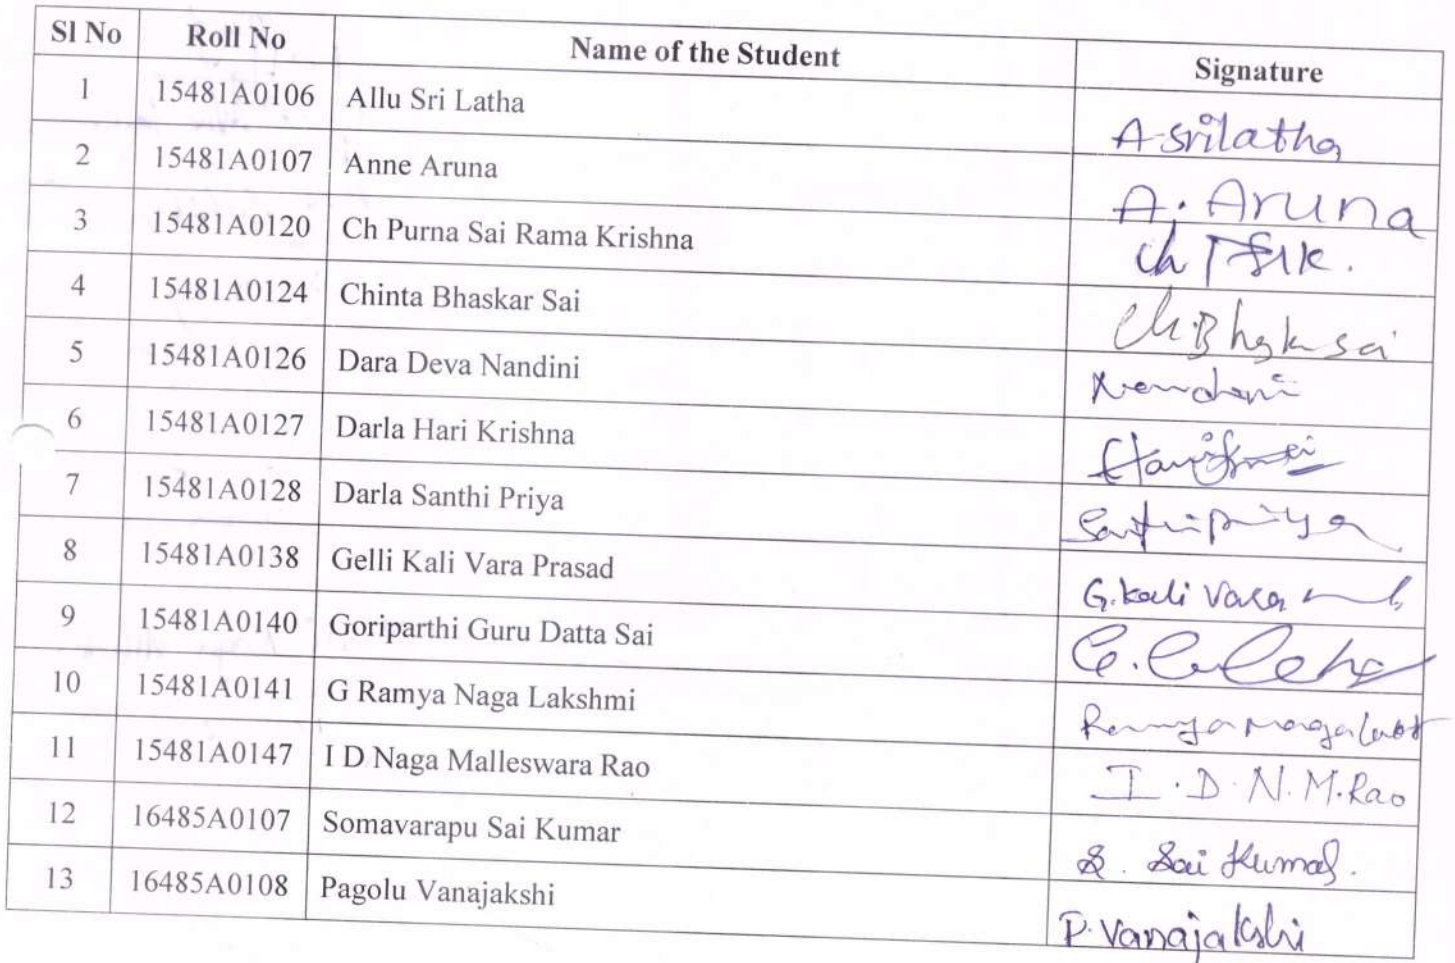 Sl No Roll No Name of the Student Signature
1 15481A0106 Allu Sri Latha A Srilatha
2 15481A0107 Anne Aruna A. Aruna
3 15481A0120 Ch Purna Sai Rama Krishna Ch
4 15481A0124 Chinta Bhaskar Sai Ch.B sai
5 15481A0126 Dara Deva Nandini
6 15481A0127 Darla Hari Krishna
7 15481A0128 Darla Santhi Priya
8 15481A0138 Gelli Kali Vara Prasad G.Kali Vara
9 15481A0140 Goriparthi Guru Datta Sai
10 15481A0141 G Ramya Naga Lakshmi
11 15481A0147 I D Naga Malleswara Rao I.D.N.M.Rao
12 16485A0107 Somavarapu Sai Kumar S. Sai Kumar.
13 16485A0108 Pagolu Vanajakshi P.Vanajakshi